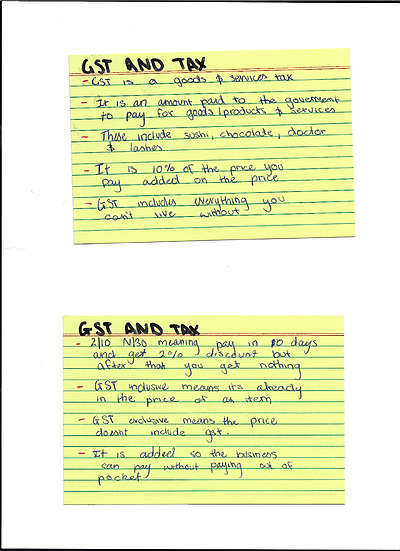 GST AND TAX
- GST is a goods & services tax
- It is an amount paid to the goverment
to pay for goods/products & services
- These include sushi, chocolate, doctor
& lashes
- It is 10% of the price you
pay added on the price
- GST includes everything you
can't live without
GST AND TAX
- 2/10 N/30 meaning pay in 10 days
and get 2% discount but
after that you get nothing
- GST inclusive means its already
in the price of an item
- GST exclusive means the price
doesnt include gst.
- It is added so the business
can pay without paying out of
pocket